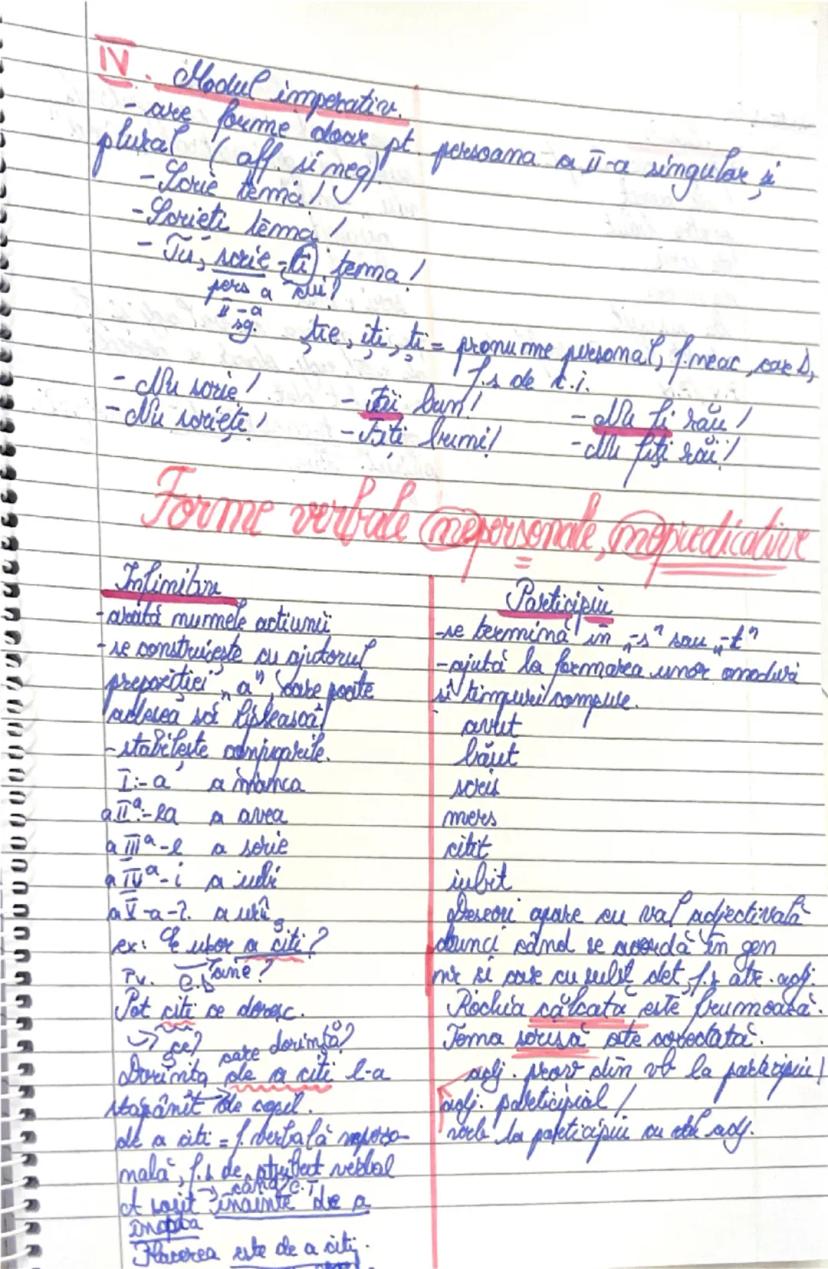 IV. Modul imperativ.
- are forme doar pt. persoana a II-a singular și
plural (aff. și neg)
- Scrie tema!
- Scrieți tema!
- Tu, scrie-ți tema!
pers a cui?
II-a
sg.
ție, iți, ți = pronume personal, f. neac, caz D,
f.s de c.i.
- Nu scrie!
- Nu scrieți!
- Fii bun!
- Fiți buni!
- Nu fi rău!
- Nu fiți răi!
Forme verbale nepersonale, nepredicative
Infinitiv
- arată numele acțiunii
- se construiește cu ajutorul
prepoziției "a", care poate
adesea să lipsească!
- stabilește conjugările.
I:-a a mânca
a II a:-ea a avea
a III a-e a scrie
a IV a-i a iubi
a V-a-î a urî
ex: E ușor a citi?
Pv. ane?
Pot citi ce doresc.
ce? care dorință?
Dorința de a citi l-a
stăpânit de copil.
de a citi = f. verbală neperso-
nală, f.s de atribut verbal
când? C.T
A sosit înainte de a
înopta
Placerea este de a citi.
Participiu
- se termină în "-s" sau "-t"
- ajută la formarea unor moduri
și timpuri compuse.
avut
băut
scris
mers
citit
iubit
Deseori apare cu val adjectivală
atunci când se acordă în gen
nr și caz cu subst det, f.s atr. adj.
Rochia călcată este frumoasă.
Tema scrisă este corectată.
adj. prov din vb la participiu/
adj. participial/
verb la participiu cu val adj.